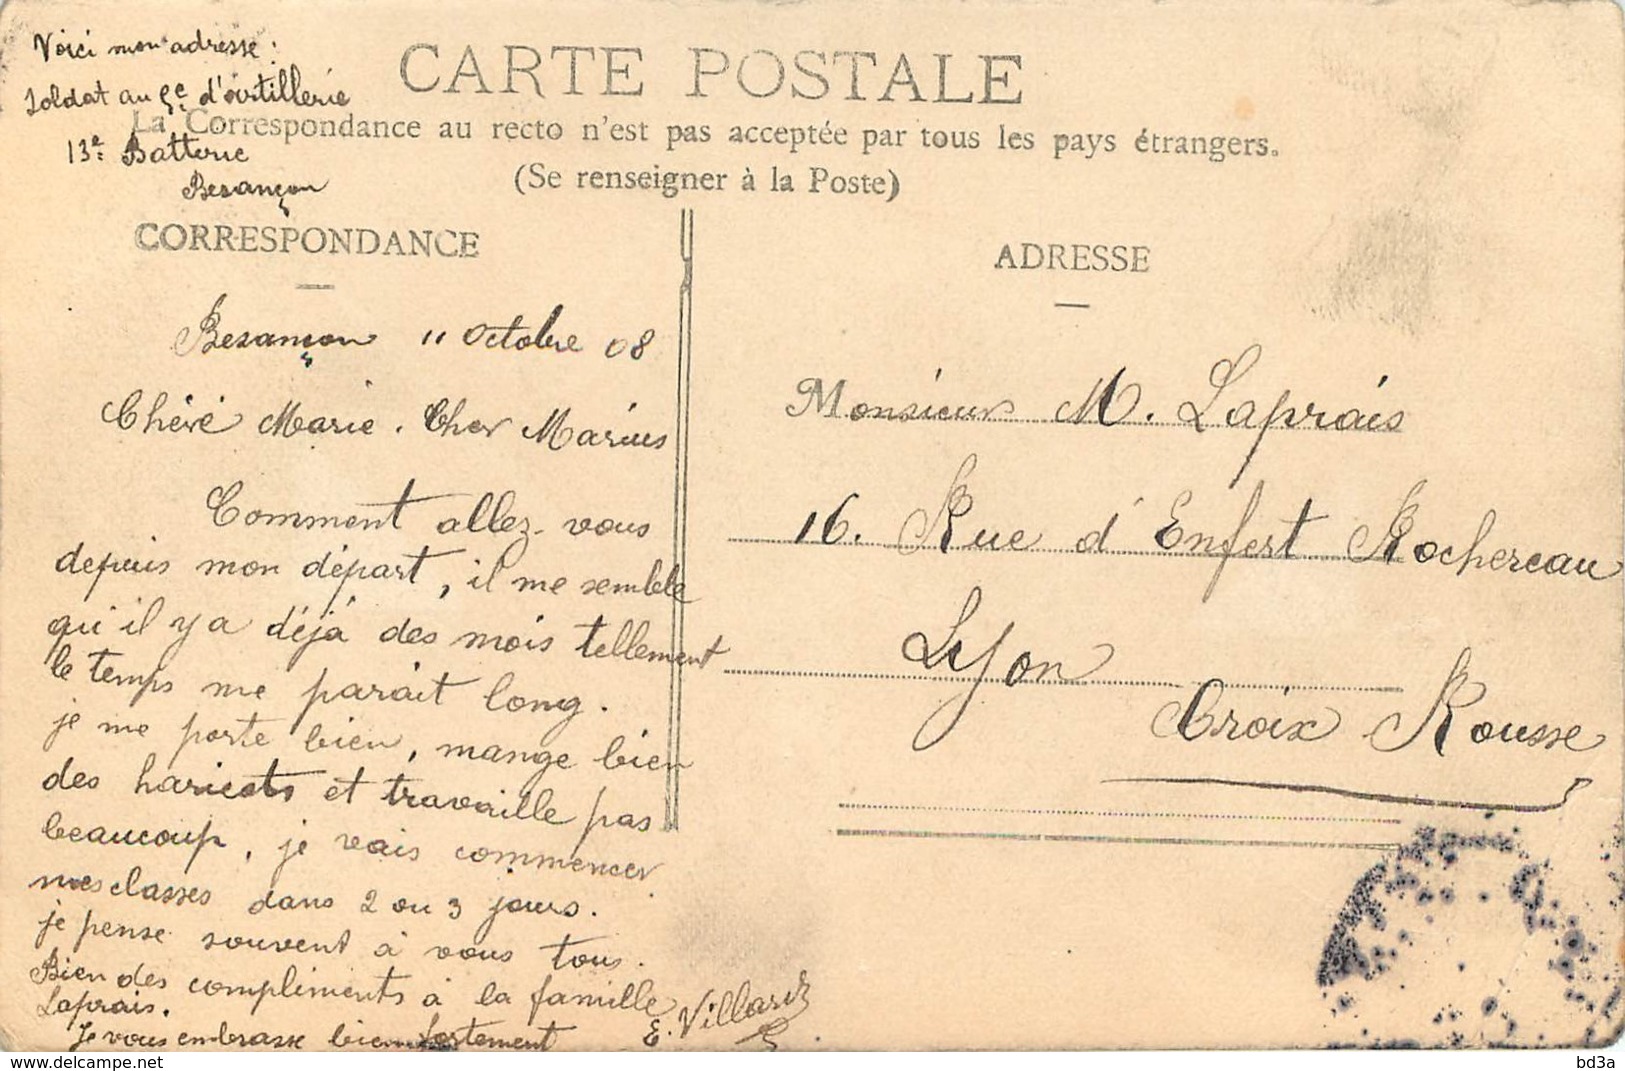 Voici mon adresse :
Soldat au 5e d'artillerie
13e Batterie
Besançon
CARTE POSTALE
La Correspondance au recto n'est pas acceptée par tous les pays étrangers.
(Se renseigner à la Poste)
CORRESPONDANCE
Besançon 11 Octobre 08
Chère Marie. Cher Marius
Comment allez-vous
depuis mon départ, il me semble
qu'il y a déjà des mois tellement
le temps me parait long.
je me porte bien, mange bien
des haricots et travaille pas
beaucoup, je vais commencer
mes classes dans 2 ou 3 jours.
je pense souvent à vous tous.
Bien des compliments à la famille
Laprais.
Je vous embrasse bien fortement
E. Villard
ADRESSE
Monsieur M. Laprais
16. Rue d'Enfert Rochereau
Lyon
Croix Rousse
bd3a